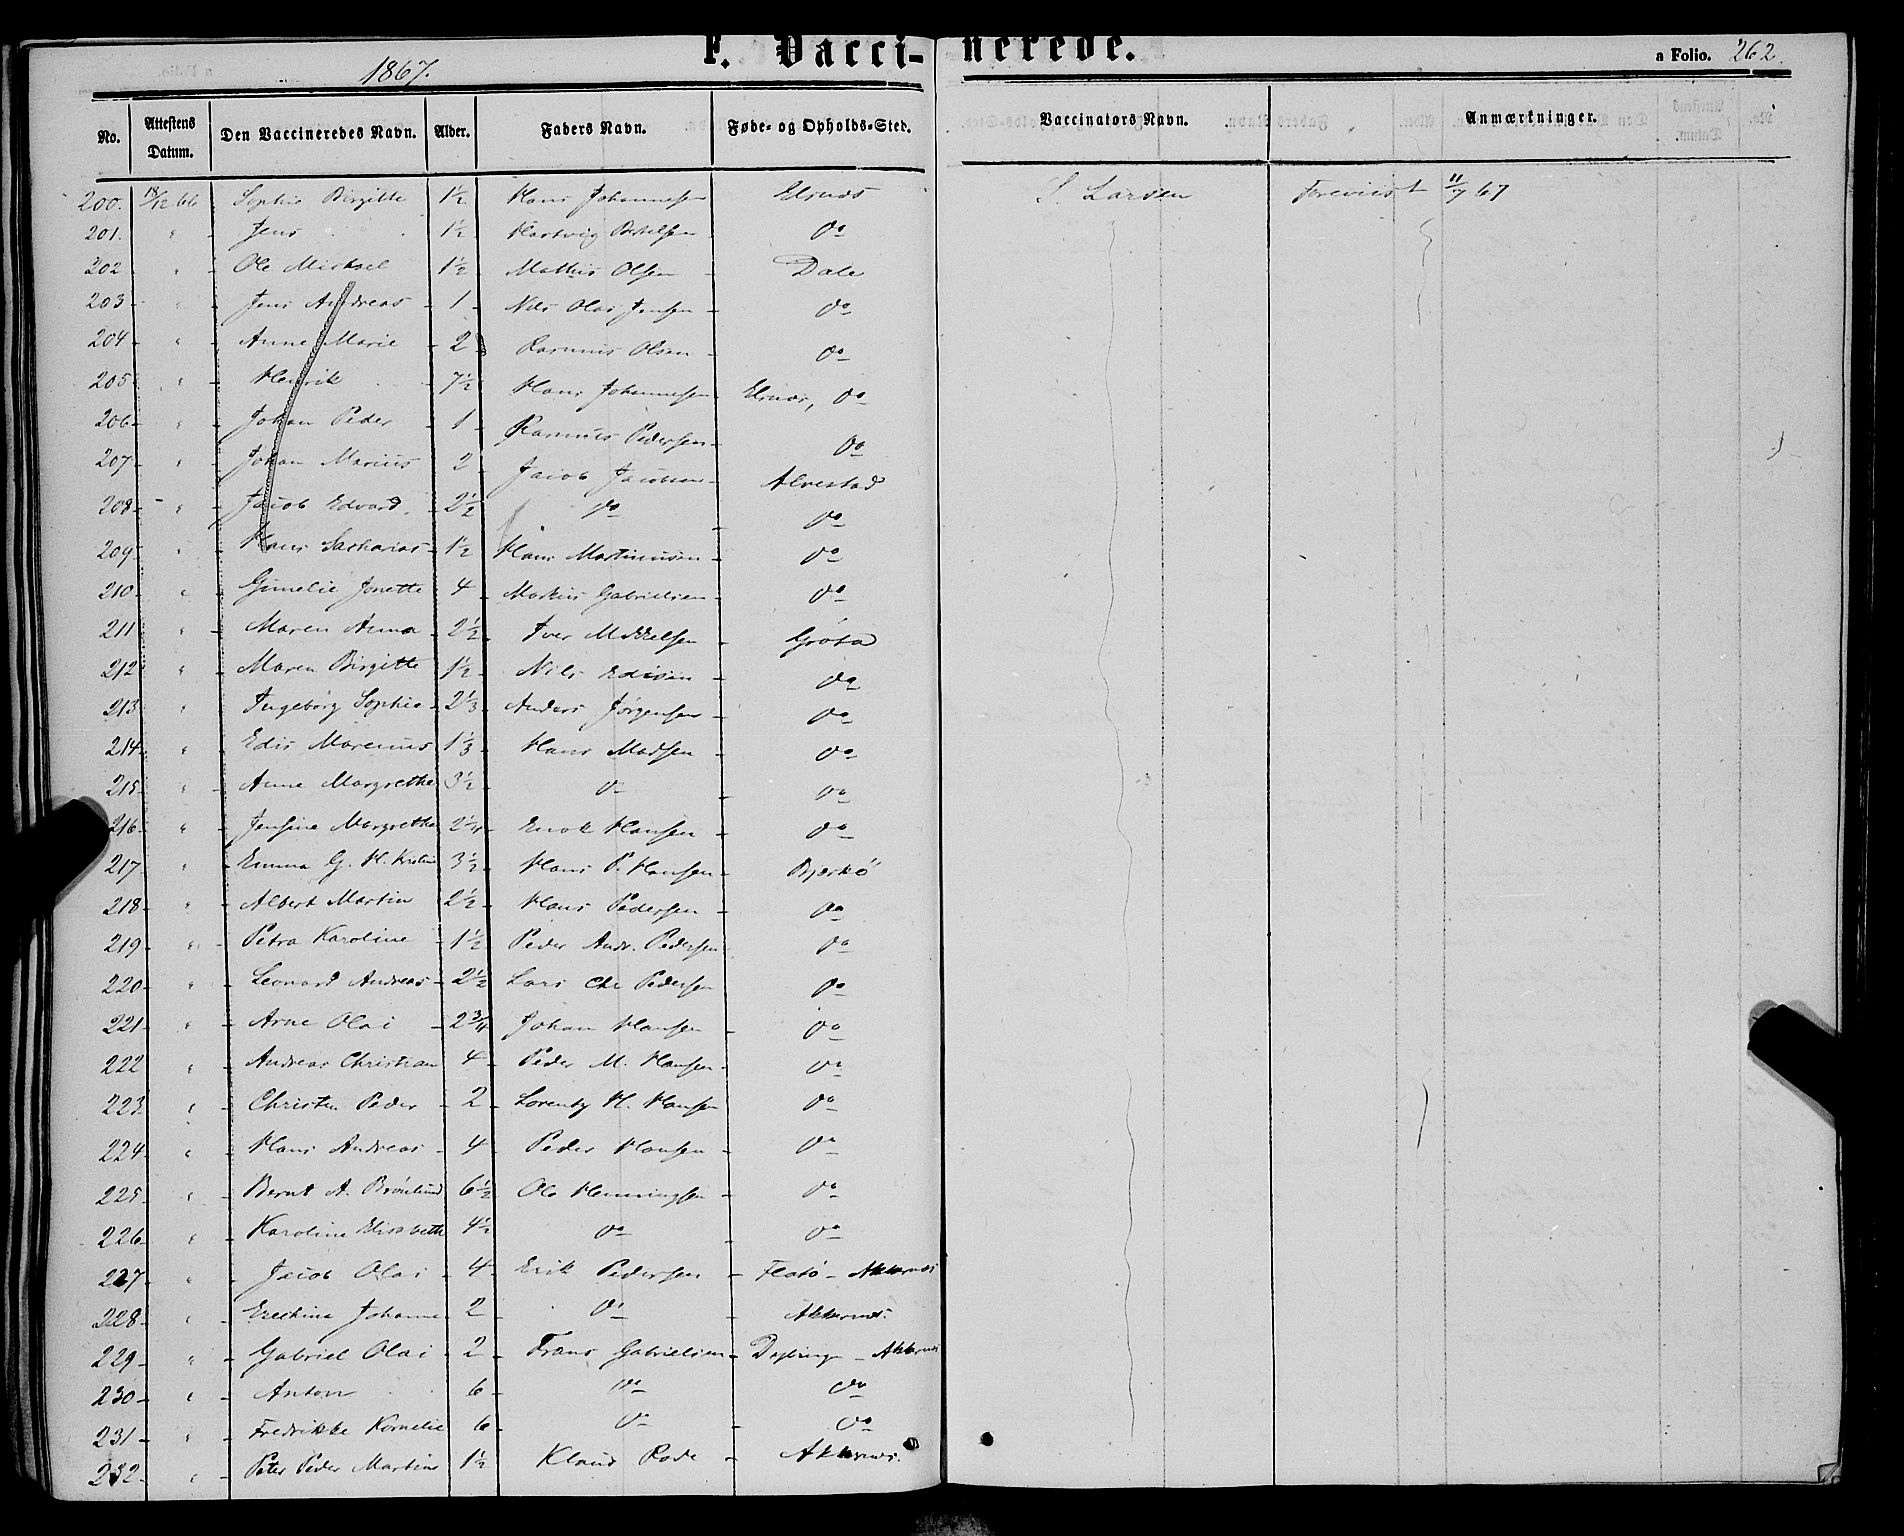 F. Vaccinerede.
1867.
a Folio. 262.
No. Attestens Datum. Den Vaccineredes Navn. Alder. Faders Navn. Føde- og Opholds-Sted. Vaccinators Navn. Anmærkninger.
200. 18/12 66 Sophie Birgitte 1½ Hans Johannessen Elsnæs S. Larsen Foreviist 11/7 67
201. " Jens 1½ Hartvig Bertelsen do
202 " Ole Michael 1½ Mathis Olsen Dale
203 " Jens Andreas 1 Nils Olai Jensen do
204 " Anne Marie 2 Rasmus Olsen do
205 " Henrik 7½ Hans Johannessen Elsnæs, do
206 " Johan Peder 1 Rasmus Pedersen do
207 " Johan Marius 2 Jacob Jacobsen Alvestad
208 " Jacob Edvard 2½ do do
209 " Hans Sacharias 1½ Hans Martinusen do
210 " Gunelie Jonette 4 Markus Gabrielsen do
211 " Maren Anna 2½ Iver Mikkelsen Gröta
212 " Maren Birgitte 1½ Nils do
213 " Ingeborg Sophie 2⅓ Anders Jörgensen do
214 " Edis Marenius 1⅓ Hans Madsen do
215 " Anne Margrethe 3½ do do
216 " Jensine Margrethe 2¼ Enok Hansen do
217 " Emma G. H. Kristine 3½ Hans P. Hansen Bjerkö
218 " Albert Martin 2½ Hans Pedersen do
219 " Petra Karoline 1½ Peder Andr. Pedersen do
220 " Leonard Andreas 2½ Lars Chr Pedersen do
221 " Arne Olai 2¾ Johan Hansen do
222 " Andreas Christian 4 Peder M. Hansen do
223 " Christen Peder 2 Lorentz H. Hansen do
224 " Hans Andreas 4 Peder Hansen do
225 " Bernt A. Brönlund 6½ Ole Henningsen do
226 " Karoline Elisabeth 4½ do do
227 " Jacob Olai 4 Erik Pedersen Flatö - Akkernæs
228 " Johanne 2 do Akkernæs.
229 " Gabriel Olai 2 Frans Gabrielsen - Akkernæs
230 " Anton 6 do do
231 " Fredrikke Kornelie 6 do do
232 " Peter Peder Martin 1½ Klaus Rode Akkernæs.